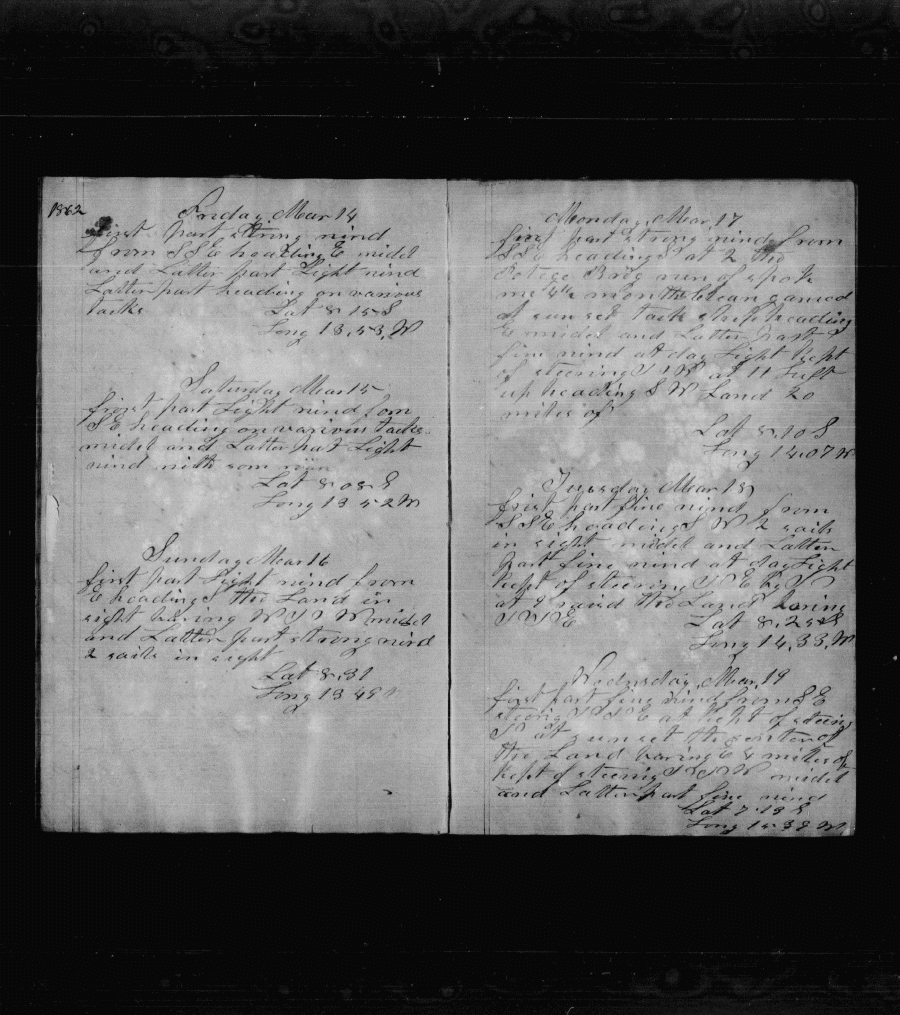 1862
Friday Mar 14
first part strong wind
from SSE heading E midel
and Latter part Light wind
Latter part heading on various
tacks Lat 8-15 S
Long 13,53, W
Saturday Mar 15
first part Light wind from
SE heading on varivous tacks
midel and Latter part Light
wind with som
Lat 8-08-S
Long 13 52 W
Sunday Mar 16
first part Light wind from
E heading S the Land in
sight baring W midel
and Latter part strong wind
2 sails in sight
Lat 8,31
Long 13 49
Monday Mar 17
first part strong wind from
SSE heading S at 2 the
Brig run of spok
me 4½ months clean
at sun set tack ship heading
E midel and Latter part
fine wind at day Light kept
of steering at 11 Luft
up heading S W Land 20
miles of
Lat 8,10 S
Long 14,07 W
Tuesday Mar 18
first part fine wind from
SSE heading S W 2 sails
in sight midel and Latter
part fine wind at day Light
kept of steering E by
at 9 raisd the Land baring
Lat 8,25 S
Long 14,33, W
Wednsday Mar, 19
first part fine wind from S E
at kept of steering
at sunset the senter of
the Land baring E 4 miles of
kept of steering midel
and Latter part fine wind
Lat 7-13 S
Long 15-39 W